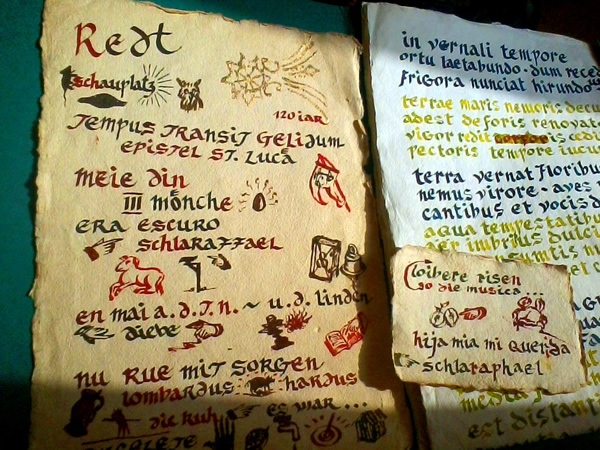 Redt
schauplatz
120 iar
Tempus transit gelidum
epistel st. Luca
meie din
III mönche
era escuro
schlaraffael
en mai a.d.T.n. ~ u.d. linden
diebe
nu rue mit sorgen
lombardus hardus
die kuh es war ...
in vernali tempore
ortu laetabundo · dum reced
frigora nunciat hirundo
terrae maris nemoris decu
adest deforis renovat
vigor redit is cedi
pectoris tempore iucu
terra vernat floribu
nemus virore · aves
cantibus et vocis d
aqua tempestatibu
aer imbribus dulci
Cloibere risen
so die musica ...
hija mia mi querida
schlaraphael
media
est distant